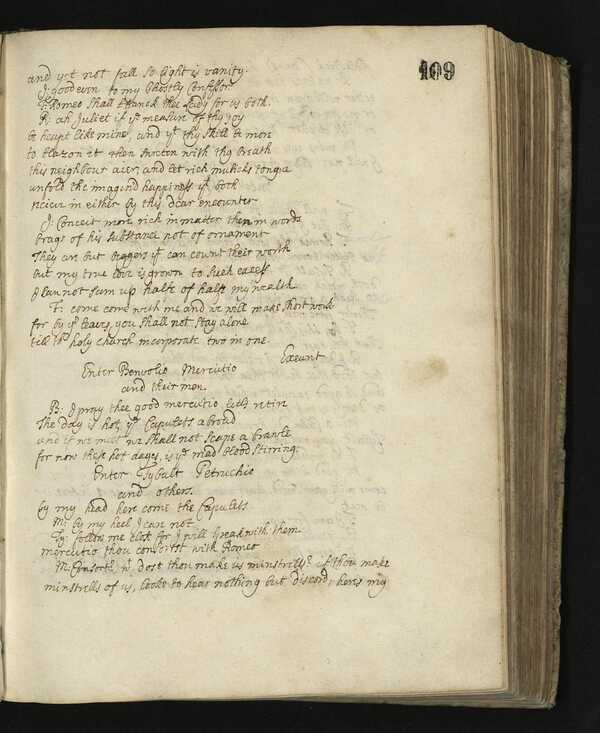 109
and yet not fall so light is vanity.
J: good even to my Ghostly Confessor
F: Romeo shall thanck thee Lady for us both.
R: ah Juliet if ye measure of thy joy
be heapt like mine, and yt thy skill be more
to blazon it then sweeten with thy breath
this neighbour aier, and let rich musicks tongue
unfold the imagind happiness yt both
receive in either by this dear encounter
J: Conceit more rich in matter then in words
brags of his substance not of ornament
They are but beggers yt can count their worth
but my true love is grown to such excess
I can not sum up halfe of halfe my wealth
F: come come with me and we will make short work
for by yr leaves, you shall not stay alone
till holy church incorporate two in one
Exeunt
Enter Benvolio Mercutio
and their men.
B. I pray thee good mercutio lets retire
The day is hot, ye Capulets abroad
and if we meet we shall not scape a brawle
for now these hot dayes, is ye mad blood stirring.
Enter Tybalt Petruchio
and others.
by my head here come the Capulets
M: by my heel I care not
Ty: follow me close for I will speak with them
mercutio thou consortst with Romeo
M. Consort, wt dost thou make us minstrells? if thou make
minstrells of us, looke to hear nothing but discord, heres my